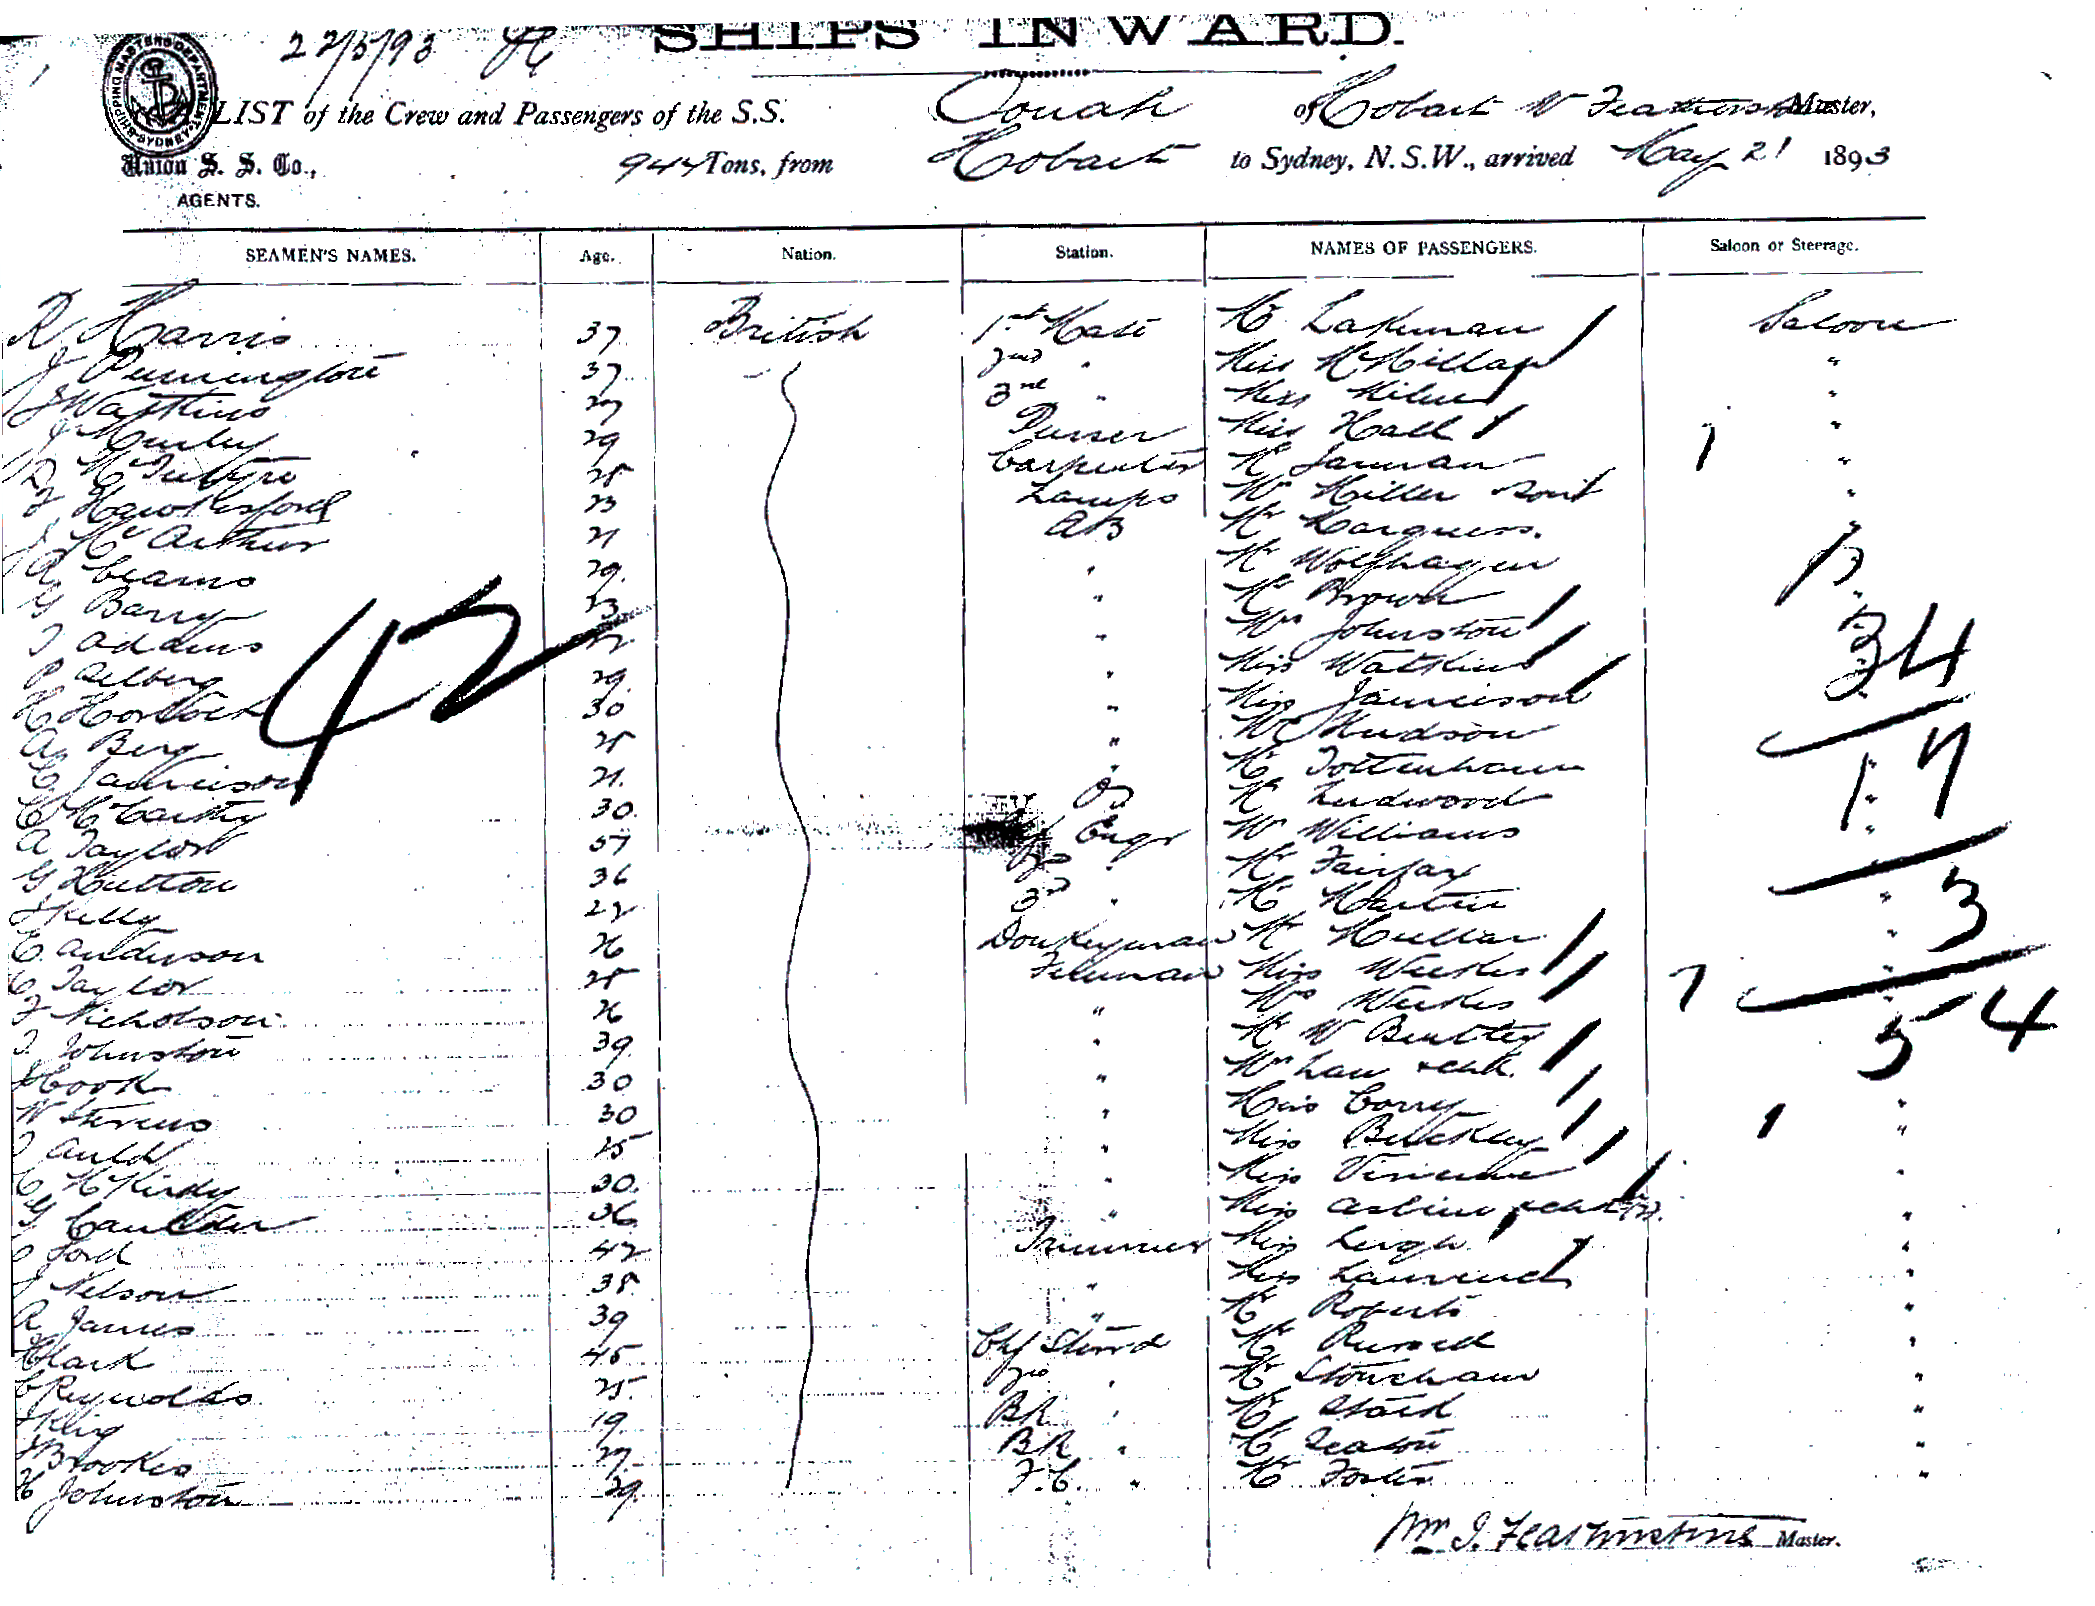 22/5/93
SHIPS INWARD.
SHIPPING MASTERS DEPARTMENT SYDNEY
A LIST of the Crew and Passengers of the S.S. Oonah of Hobart W Featherstone Master,
Union S. S. Co., 944 Tons, from Hobart to Sydney, N.S.W., arrived May 21 1893
AGENTS.
SEAMEN'S NAMES. Age. Nation. Station. NAMES OF PASSENGERS. Saloon or Steerage.
R Harris 37 British 1st Mate Mr Lakeman Saloon
J Pennington 37 2nd " Miss McMillan "
J Watkins 27 3rd " Miss Milne "
J Hurley 29 Purser Miss Hall 1 "
D McIntyre 25 Carpenter Mr Jarman "
F Hawkesford 23 Lamps Mr Miller "
J McArthur 21 AB Mr Marquess. "
A Cearns 29. " Mr Wolfhagen 13
G Barry 23 " Mr Brown "
T Adams " Mrs Johnston 34
P Aelberg 29. " Miss Watkins
H Horlock 30 " Miss Jamieson
A Berg 25 " Mr Hudson
C Jamieson 21. " Mr Tottenham 17
C McCarthy 30. OS Mr Ludwood "
A Taylor 57 Engr Mr Williams "
G Hutton 36 2nd " Mr Fairfax
J Kelly 22 3rd " Mr Martin " 3
E Anderson 26 Donkeyman Mr Mullar "
C Taylor 25 Fireman Miss Weekes 7 "
F Nicholson 26 " Mrs Weekes 54
T Johnston 39. " Mr W Bentley
J Cook 30 " Mrs Law & chld.
W Stevens 30 " Miss Corry "
T Auld 25 " Miss Buckley 1 "
C McKirdy 30. " Miss "
G Caulder 36 " Miss
C Ford 42 Trimmer Miss Leigh "
J Nelson 38 " Miss Laurence "
R James 39 " Mr Roberts "
Clark 45 Chf Steward Mr Russell "
C Reynolds 25. 2nd " Mr Stoneham "
J King 19. BR " Mr Stack "
J Brookes 27. BR " Mr Seaton "
H Johnston 29. F.C. " Mr Foster "
42
Wm J. Featherstone Master.